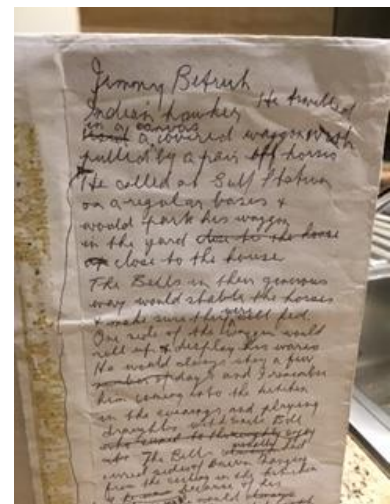 Jimmy
Indian hawker He travelled
in a canvas
a covered waggon
pulled by a pair off horses
He called at Gulf Station
on a regular bases &
would park his waggon
in the yard close to the house
close to the house
The Bells in their generous
way would stable the horses
& make sure they were well fed.
One side of the waggon would
roll up & display his wares
He would always stay a few
days and I remember
him coming into the kitchen
in the evenings and playing
draughts with Uncle Bill
The Bells usually had
sides of bacon hanging
from the ceiling in the kitchen
& because of his
would always